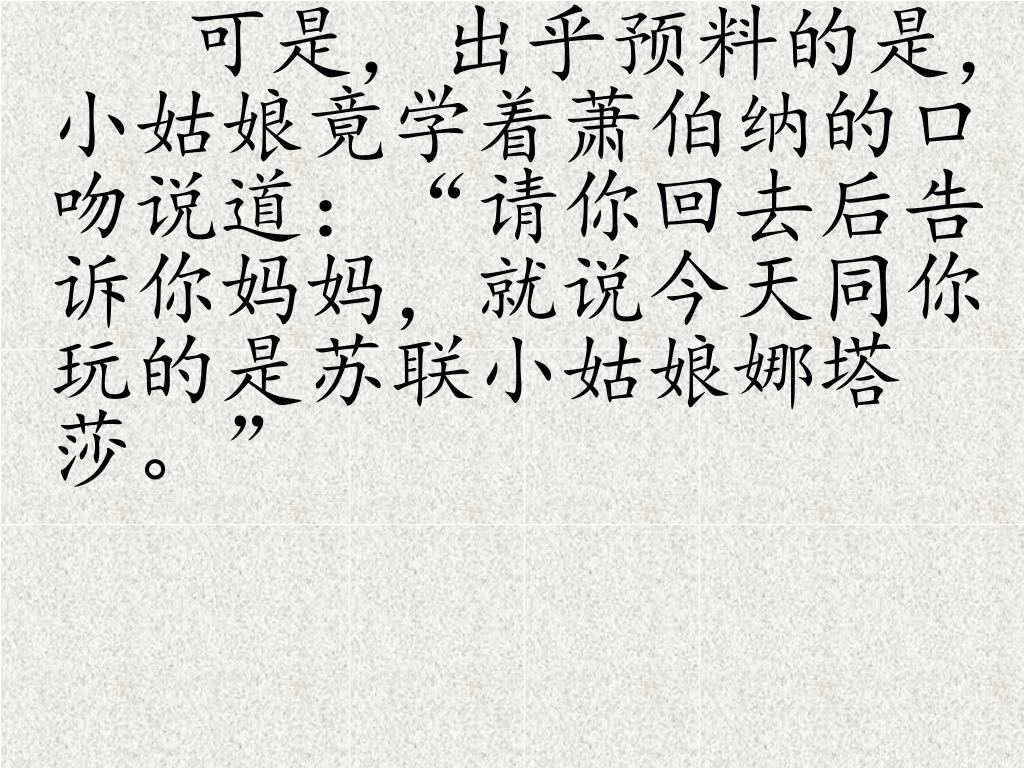 可是，出乎预料的是，
小姑娘竟学着萧伯纳的口
吻说道：“请你回去后告
诉你妈妈，就说今天同你
玩的是苏联小姑娘娜塔
莎。”